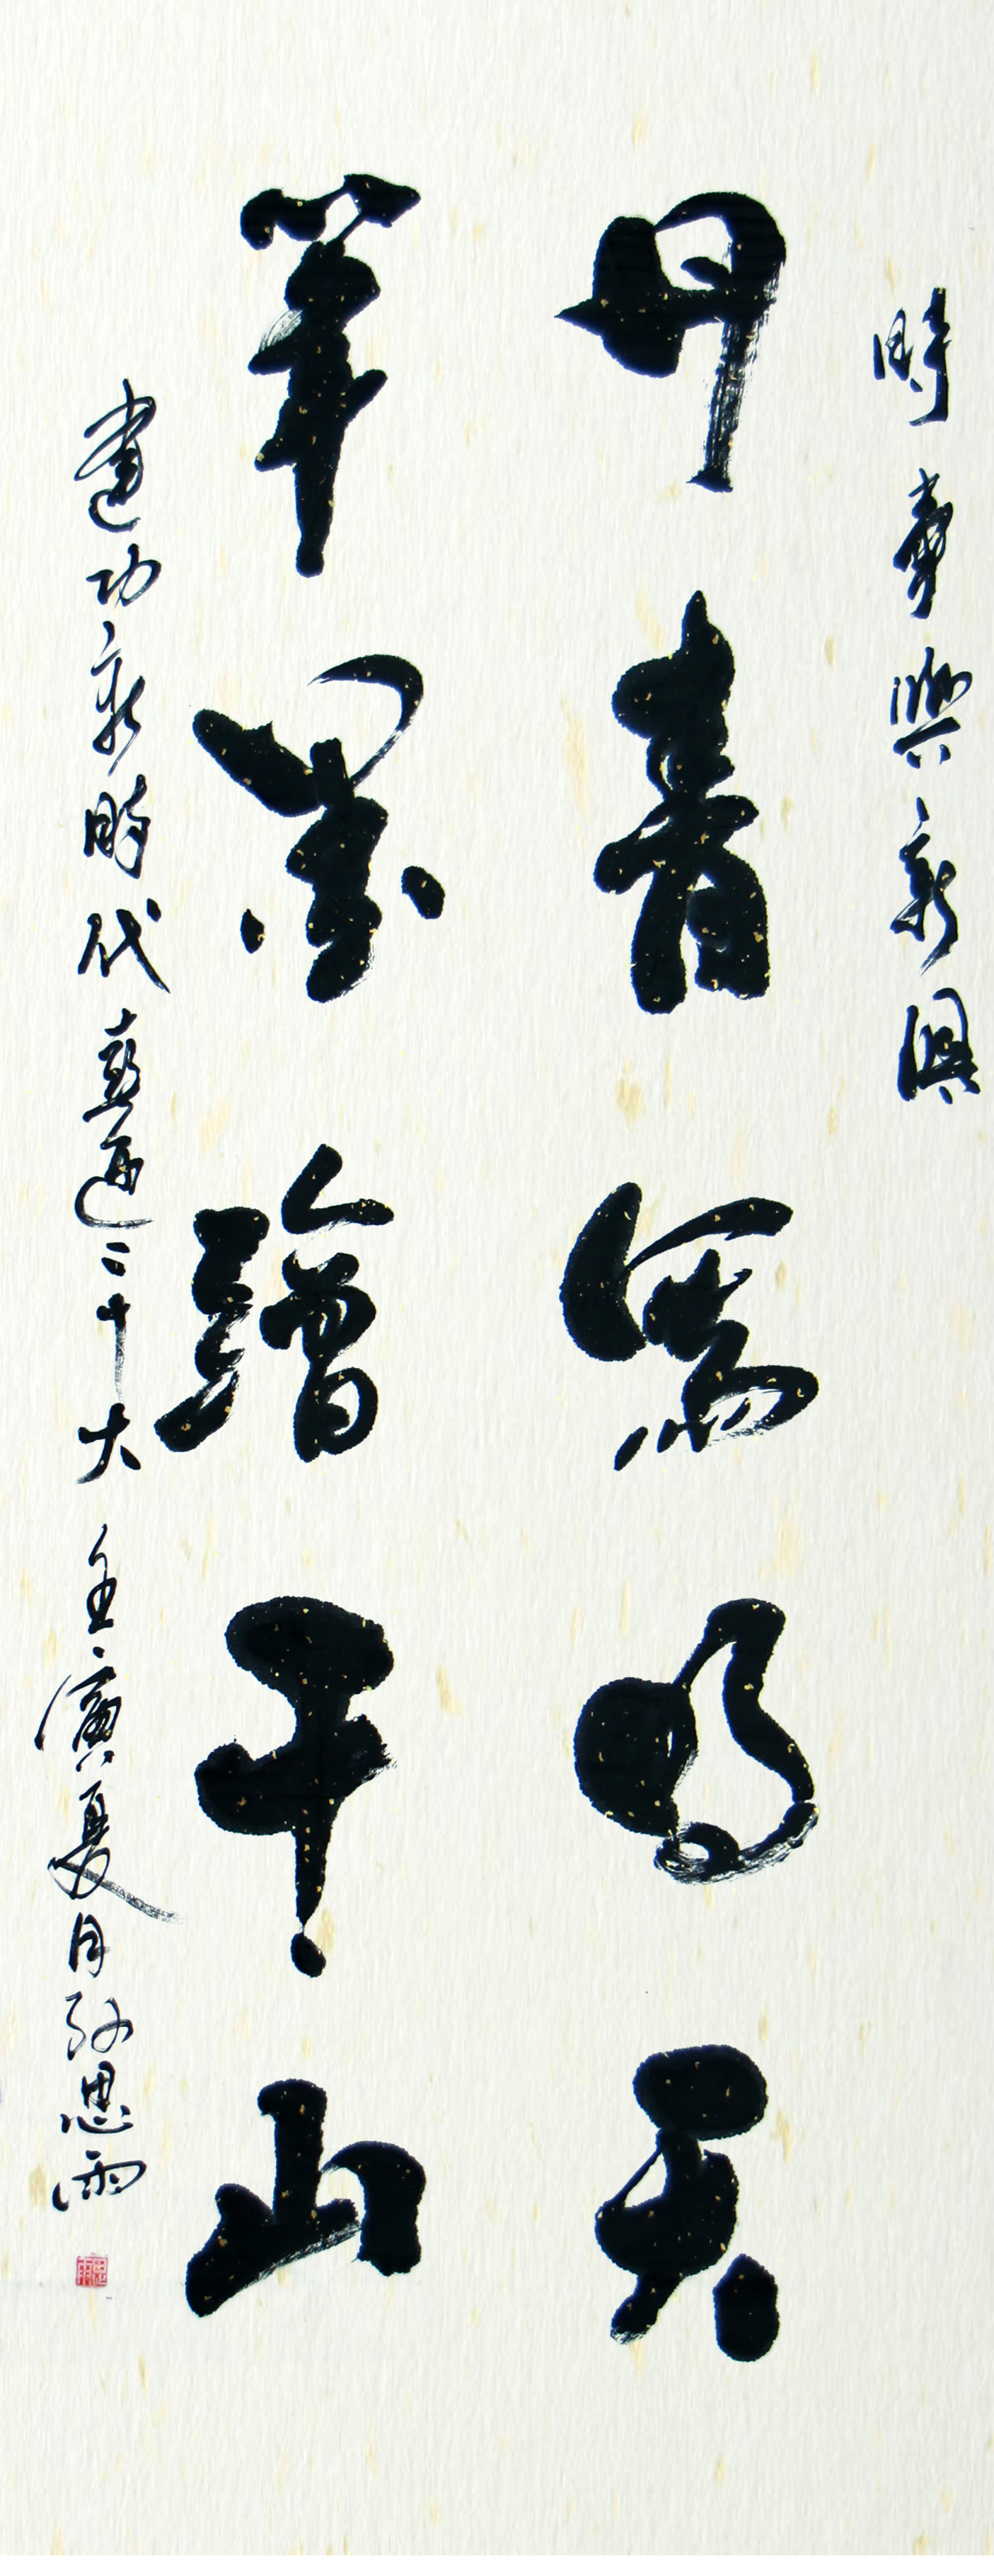 時與新
丹青寫明天
筆墨繪千山
建功新時代喜迎二十大 壬寅夏月孫思雨